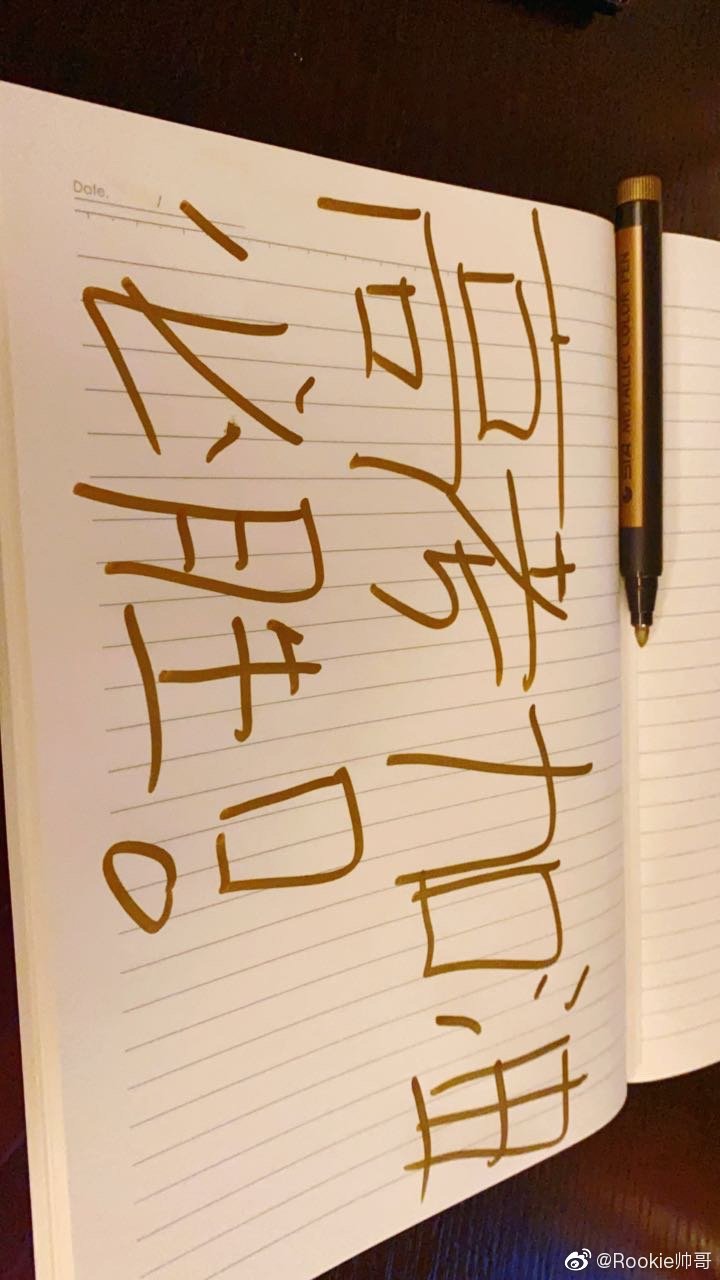 高考加油
必胜！
Date. /
STA METALLIC COLOR PEN
@Rookie帅哥